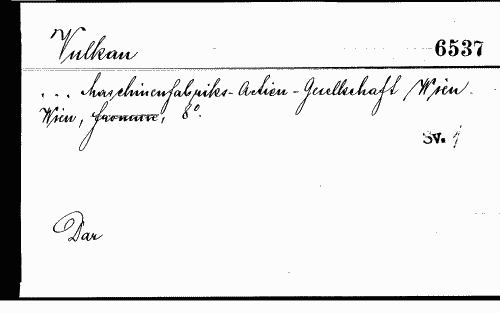 Vulkan 6537
... Maschinenfabriks-Actien-Gesellschaft Wien.
Wien, Fromme, 8°.
Sv. 1
Dar